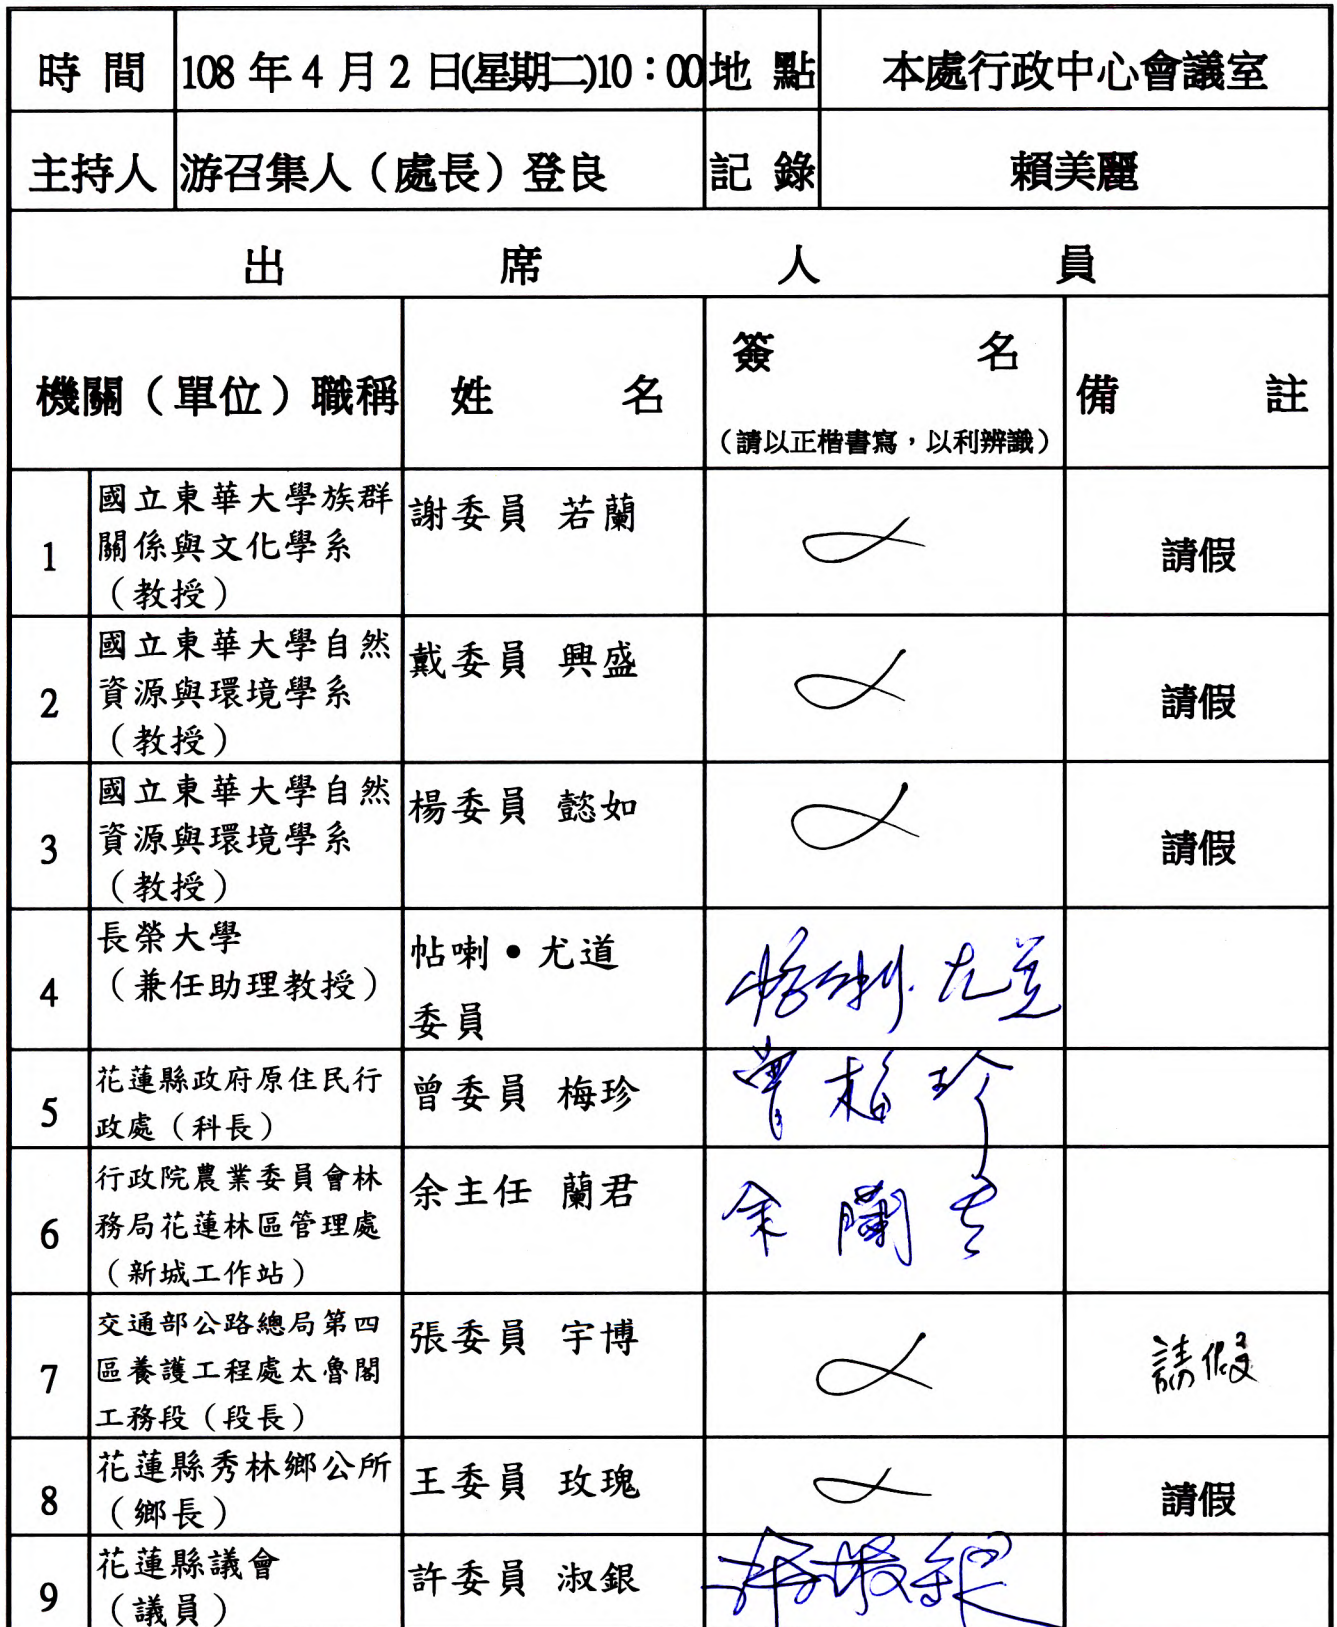 時 間 108 年 4 月 2 日(星期二)10：00 地 點 本處行政中心會議室
主持人 游召集人（處長）登良 記 錄 賴美麗
出 席 人 員
機關（單位）職稱 姓 名 簽 名 備 註
（請以正楷書寫，以利辨識）
1 國立東華大學族群
關係與文化學系
（教授）
謝委員 若蘭
請假
2 國立東華大學自然
資源與環境學系
（教授）
戴委員 興盛
請假
3 國立東華大學自然
資源與環境學系
（教授）
楊委員 懿如
請假
4 長榮大學
（兼任助理教授）
帖喇•尤道
委員
帖喇.尤道
5 花蓮縣政府原住民行
政處（科長）
曾委員 梅珍
曾梅珍
6 行政院農業委員會林
務局花蓮林區管理處
（新城工作站）
余主任 蘭君
余蘭君
7 交通部公路總局第四
區養護工程處太魯閣
工務段（段長）
張委員 宇博
請假
8 花蓮縣秀林鄉公所
（鄉長）
王委員 玫瑰
請假
9 花蓮縣議會
（議員）
許委員 淑銀
許淑銀